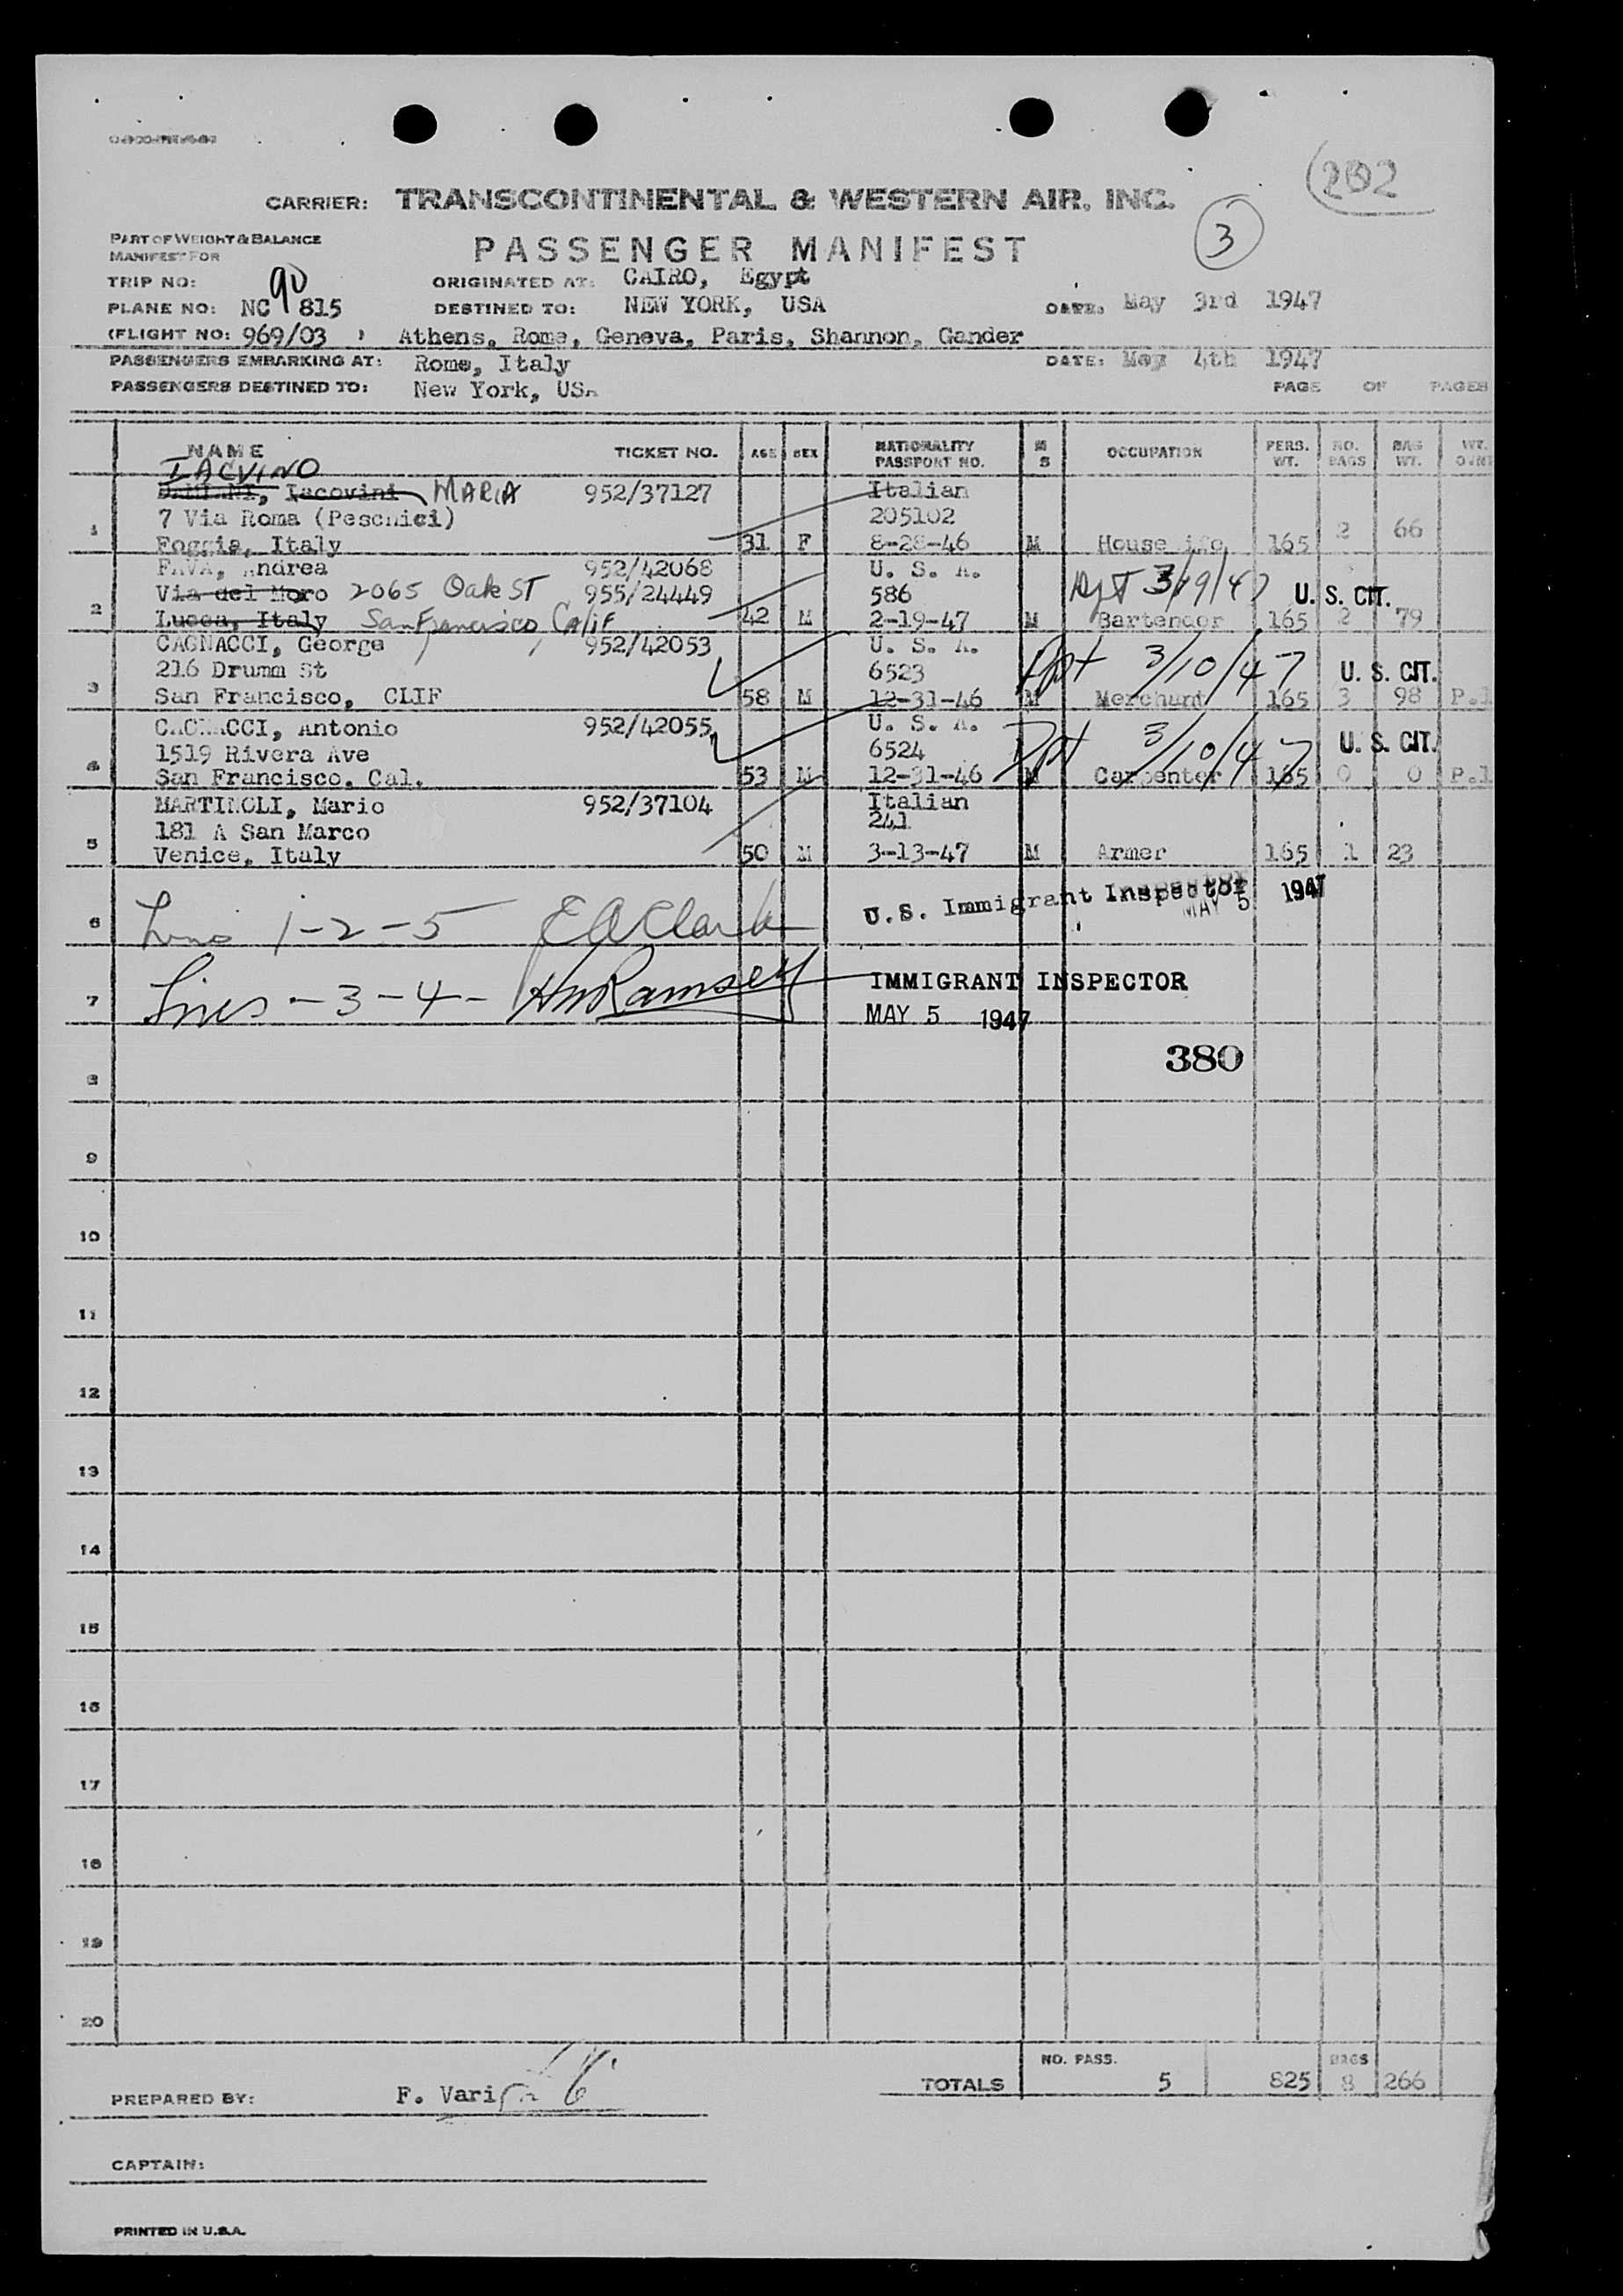 202
CARRIER: TRANSCONTINENTAL & WESTERN AIR, INC.
3
PART OF WEIGHT & BALANCE
MANIFEST FOR
PASSENGER MANIFEST
TRIP NO: ORIGINATED AT: CAIRO, Egypt
PLANE NO: NC 90815 DESTINED TO: NEW YORK, USA DATE: May 3rd 1947
(FLIGHT NO: 969/03 ) Athens, Rome, Geneva, Paris, Shannon, Gander
PASSENGERS EMBARKING AT: Rome, Italy DATE: May 4th 1947
PASSENGERS DESTINED TO: New York, USA PAGE OF PAGES
NAME TICKET NO. AGE SEX NATIONALITY PASSPORT NO. M S OCCUPATION PERS. WT. NO. BAGS BAG WT. WT.
IACVINO
Iacovini MARIA 952/37127 Italian
7 Via Roma (Peschici) 205102
1 Foggia, Italy 31 F 8-28-46 M 165 2 66
FAVA, Andrea 952/42068 U. S. A.
Via del Moro 2065 Oak ST 955/24449 586 3/19/47 U. S. CIT.
2 Lucca, Italy San Francisco, Calif 42 M 2-19-47 M Bartender 165 2 79
CAGNACCI, George 952/42053 U. S. A.
216 Drumm St 6523 Dpt 3/10/47 U. S. CIT.
3 San Francisco, CLIF 58 M 12-31-46 M Merchant 165 3 98
CAGNACCI, Antonio 952/42055 U. S. A.
1519 Rivera Ave 6524 Dpt 3/10/47 U. S. CIT.
4 San Francisco, Cal. 53 M 12-31-46 M Carpenter 165 0 0
MARTINOLI, Mario 952/37104 Italian
181 A San Marco 241
5 Venice, Italy 50 M 3-13-47 M Armer 165 1 23
6 Lines 1-2-5 E A Clark U.S. Immigrant Inspector MAY 5 1947
7 Lines - 3 - 4 - Ramsey IMMIGRANT INSPECTOR
MAY 5 1947
380
8
9
10
11
12
13
14
15
16
17
18
19
20
NO. PASS. BAGS
TOTALS 5 825 8 266
PREPARED BY: F. Vari
CAPTAIN:
PRINTED IN U.S.A.